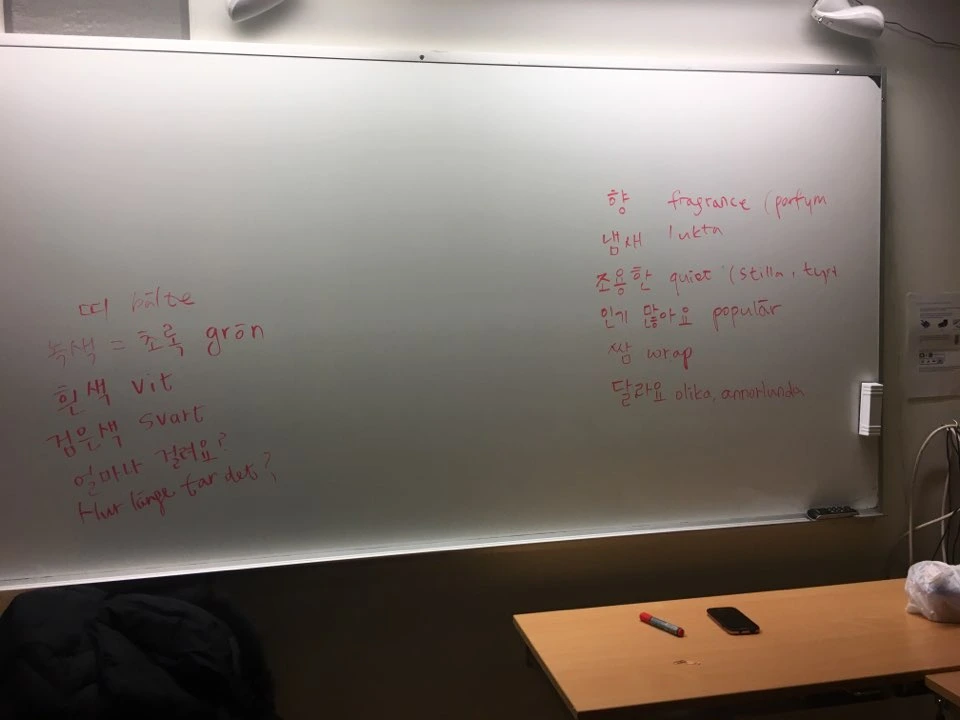 띠 bälte
녹색 = 초록 grön
흰색 vit
검은색 svart
얼마나 걸려요?
Hur länge tar det?
향 fragrance (parfym
냄새 lukta
조용한 quiet (stilla, tyst
인기 많아요 populär
쌈 wrap
달라요 olika, annorlunda